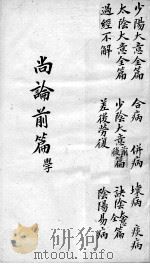 少陽大意全篇
合病　併病　壞病　痰病
太陰大意全篇
少陰大意前篇後篇
厥陰全篇
過經不解
差後勞復
陰陽易病
尚論前篇
學